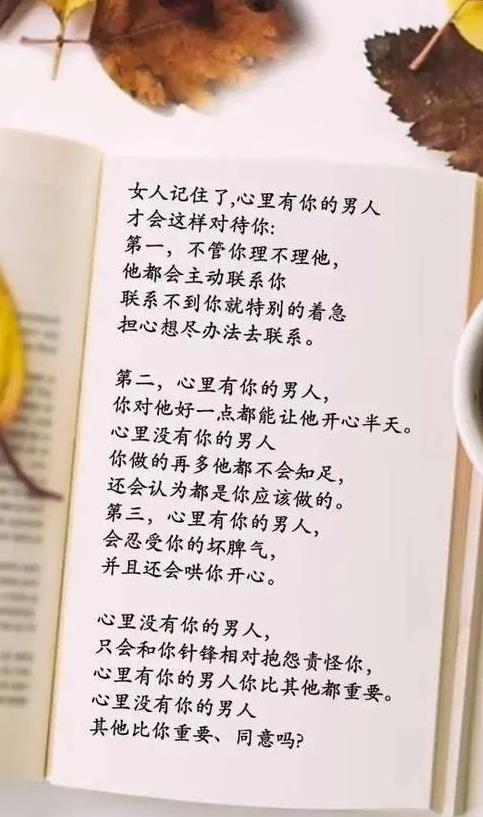 女人记住了,心里有你的男人
才会这样对待你:
第一，不管你理不理他，
他都会主动联系你
联系不到你就特别的着急
担心想尽办法去联系。
第二，心里有你的男人，
你对他好一点都能让他开心半天。
心里没有你的男人
你做的再多他都不会知足，
还会认为都是你应该做的。
第三，心里有你的男人，
会忍受你的坏脾气，
并且还会哄你开心。
心里没有你的男人，
只会和你针锋相对抱怨责怪你，
心里有你的男人你比其他都重要。
心里没有你的男人
其他比你重要、同意吗?